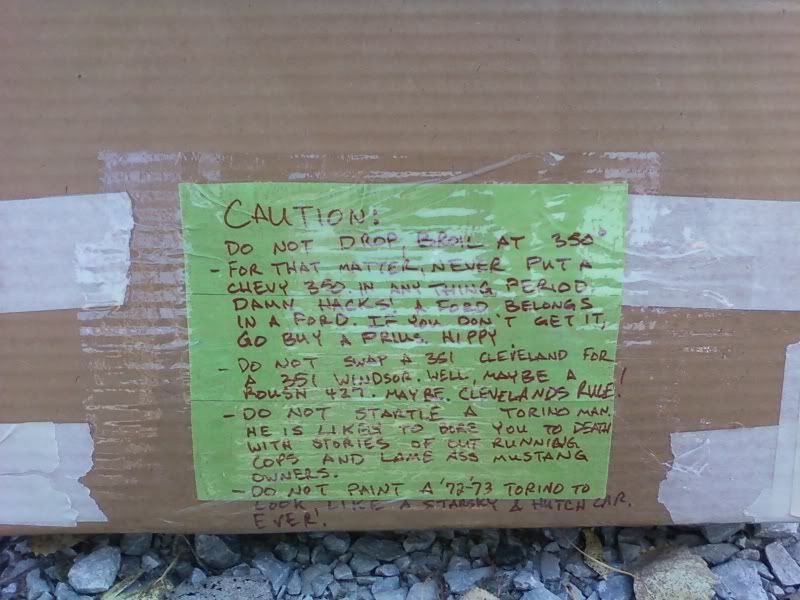 CAUTION:
DO NOT DROP, BROIL AT 350°
- FOR THAT MATTER, NEVER PUT A
CHEVY 350 IN ANYTHING PERIOD.
DAMN HACKS! A FORD BELONGS
IN A FORD. IF YOU DON'T GET IT,
GO BUY A PRIUS, HIPPY.
- DO NOT SWAP A 351 CLEVELAND FOR
A 351 WINDSOR. WELL, MAYBE A
ROUSH 427. MAYBE. CLEVELANDS RULE!
- DO NOT STARTLE A TORINO MAN.
HE IS LIKELY TO BORE YOU TO DEATH
WITH STORIES OF OUT RUNNING
COPS AND LAME ASS MUSTANG
OWNERS.
- DO NOT PAINT A '72-'73 TORINO TO
LOOK LIKE A STARSKY & HUTCH CAR.
EVER!